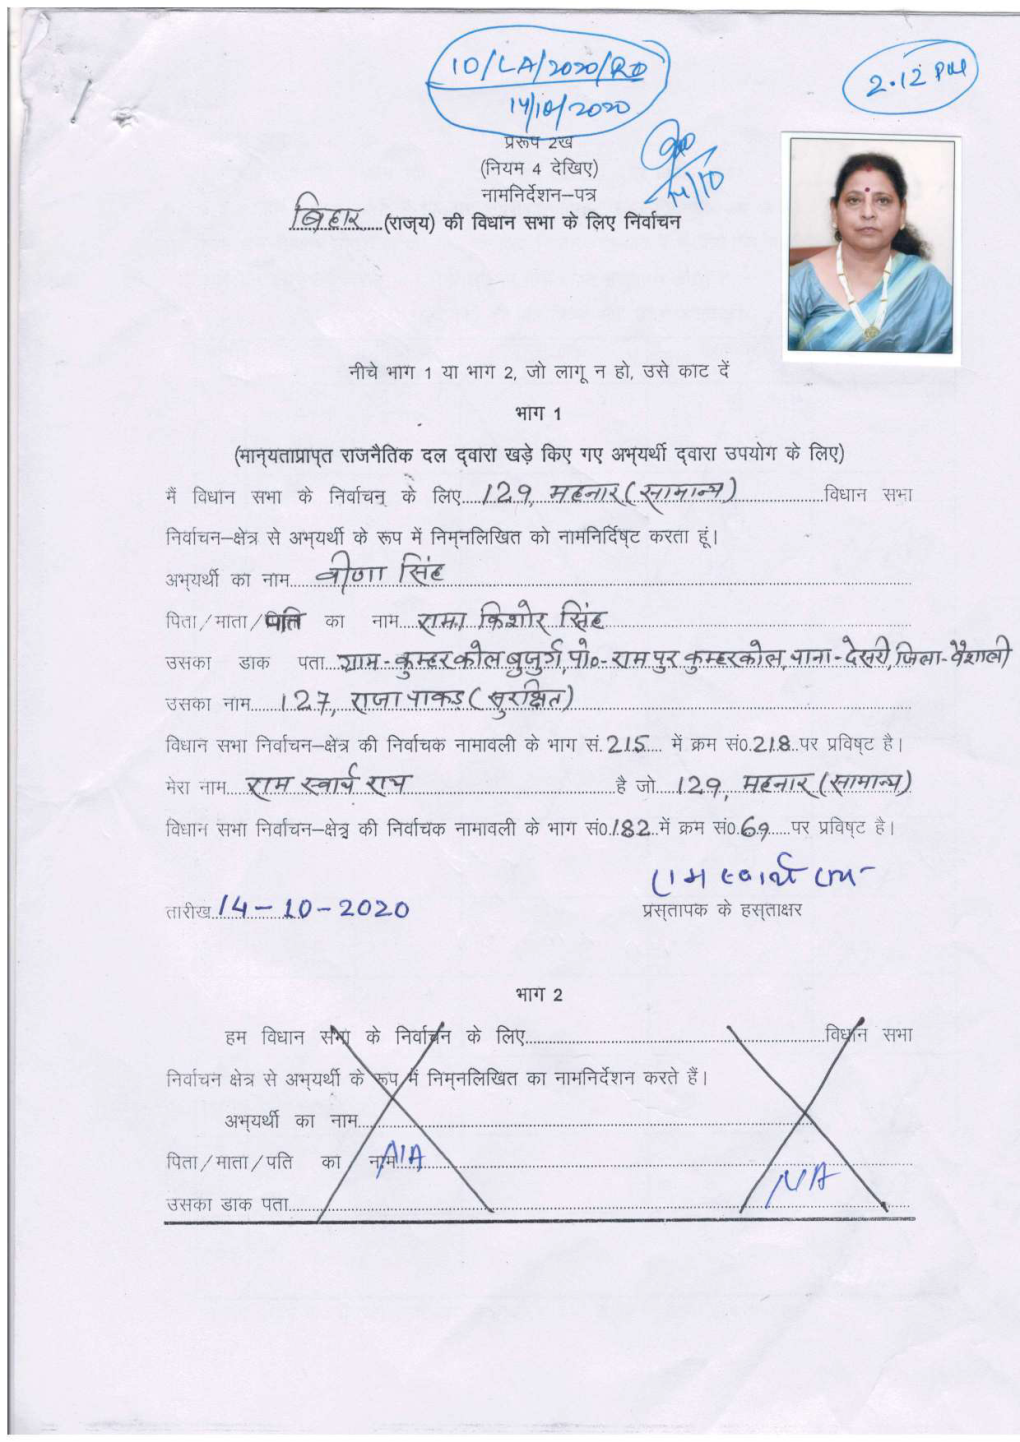 10/LA/2020/RO
14/10/2020
2.12 PM
प्ररूप 2ख
(नियम 4 देखिए)
14/10
नामनिर्देशन–पत्र
बिहार (राज्य) की विधान सभा के लिए निर्वाचन
नीचे भाग 1 या भाग 2, जो लागू न हो, उसे काट दें
भाग 1
(मान्यताप्राप्त राजनैतिक दल द्वारा खड़े किए गए अभ्यर्थी द्वारा उपयोग के लिए)
मैं विधान सभा के निर्वाचन के लिए 129, महनार (सामान्य) विधान सभा
निर्वाचन–क्षेत्र से अभ्यर्थी के रूप में निम्नलिखित को नामनिर्दिष्ट करता हूं।
अभ्यर्थी का नाम वीणा सिंह
पिता/माता/पति का नाम रामा किशोर सिंह
उसका डाक पता ग्राम-कुम्हरकोल बुजुर्ग, पो०-रामपुर कुम्हरकोल, थाना-देसरी, जिला-वैशाली
उसका नाम 127, राजा पाकड़ (सुरक्षित)
विधान सभा निर्वाचन–क्षेत्र की निर्वाचक नामावली के भाग सं. 215 में क्रम सं0. 218 पर प्रविष्ट है।
मेरा नाम राम स्वार्थ राय है जो 129, महनार (सामान्य)
विधान सभा निर्वाचन–क्षेत्र की निर्वाचक नामावली के भाग सं0. 182 में क्रम सं0. 69 पर प्रविष्ट है।
राम स्वार्थ राय
तारीख 14-10-2020 प्रस्तापक के हस्ताक्षर
भाग 2
हम विधान सभा के निर्वाचन के लिए विधान सभा
निर्वाचन क्षेत्र से अभ्यर्थी के रूप में निम्नलिखित का नामनिर्देशन करते हैं।
अभ्यर्थी का नाम
पिता/माता/पति का नाम N/A
N/A
उसका डाक पता